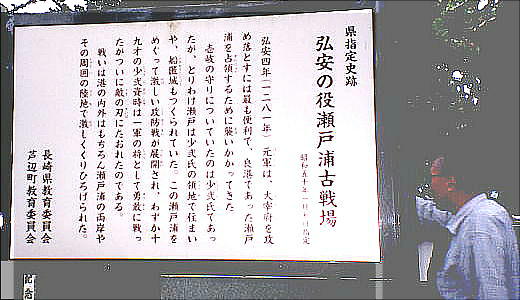 県指定史跡
弘安の役瀬戸浦古戦場
昭和五十年一月七日指定
弘安四年(一二八一年)元軍は、大宰府を攻
め落とすには最も便利で、良港であった瀬戸
浦を占領するために襲いかかってきた
壱岐の守りについていたのは少弐氏であっ
たが、とりわけ瀬戸は少弐氏の領地で住まい
や、船匿城もつくられていた。この瀬戸浦を
めぐって激しい攻防戦が展開され、わずか十
九才の少弐資時は一軍の将として勇敢に戦っ
たがついに敵の刃にたおれたのである。
戦いは港の内外はもちろん瀬戸浦の両岸や
その周囲の陸地で激しくくりひろげられた。
長崎県教育委員会
芦辺町教育委員会